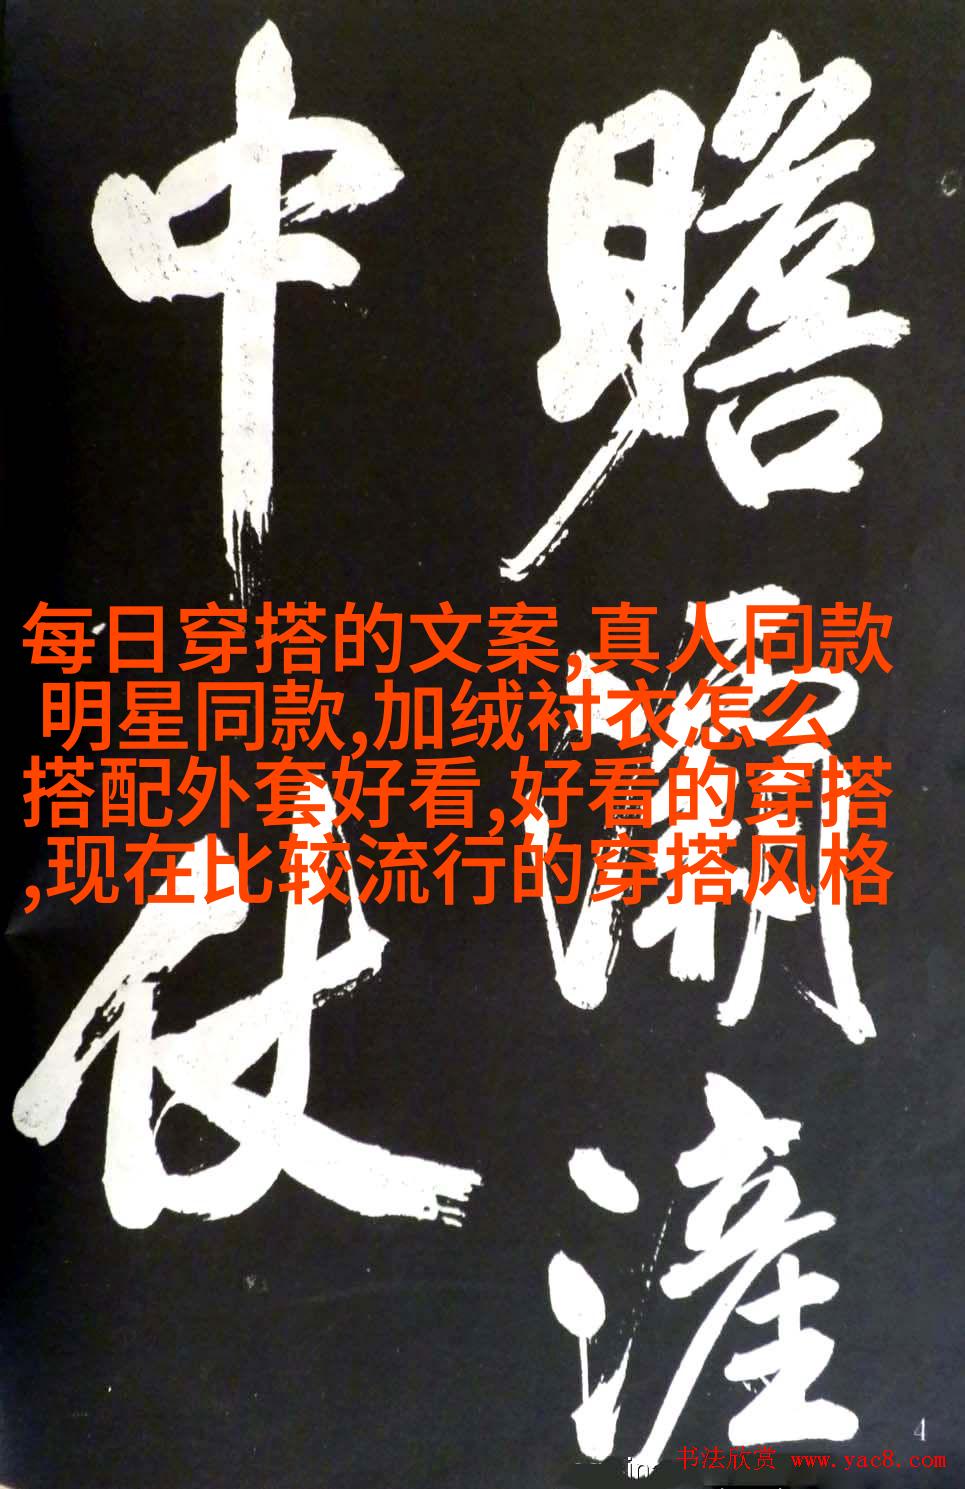 瞻灞滻
中仗
每日穿搭的文案,真人同款
明星同款,加绒衬衣怎么
搭配外套好看,好看的穿搭
,现在比较流行的穿搭风格
4
书法欣赏 www.yac8.com